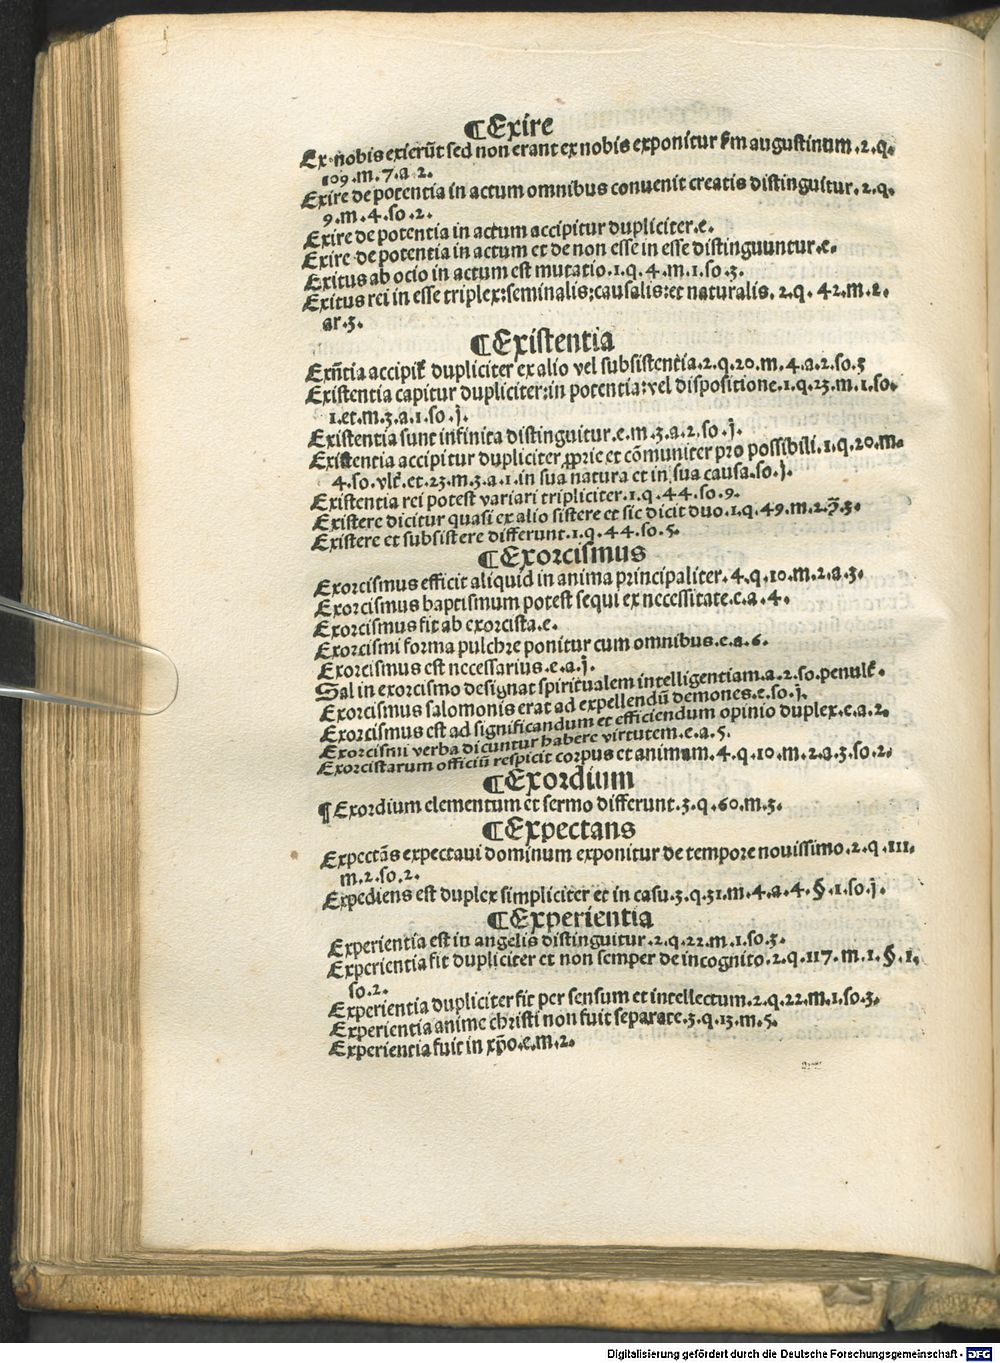 ¶Exire
Ex nobis exierūt sed non erant ex nobis exponitur ẜm augustinum.2.q.
109.m.7.a 2.
Exire de potentia in actum omnibus conuenit creatis distinguitur.2.q.
9.m.4.so.2.
Exire de potentia in actum accipitur dupliciter.e.
Exire de potentia in actum et de non esse in esse distinguuntur.e.
Exitus ab ocio in actum est mutatio.1.q.4.m.1.so.3.
Exitus rei in esse triplex:seminalis:causalis:et naturalis.2.q.42.m.2.
ar.3.
¶Existentia
Exn̄tia accipit᷑ dupliciter ex alio vel subsistentia.2.q.20.m.4.a.2.so.5
Existentia capitur dupliciter:in potentia:vel dispositione.1.q.23.m.1.so.
1.et.m.3.a.1.so.j.
Existentia sunt infinita distinguitur.e.m.3.a.2.so.j.
Existentia accipitur dupliciter ꝓprie et cōmuniter pro possibili.1.q.20.m.
4.so.vlt᷑.et.23.m.3.a.1.in sua natura et in sua causa.so.j.
Existentia rei potest variari tripliciter.1.q.44.so.9.
Existere dicitur quasi ex alio sistere et sic dicit duo.1.q.49.m.2.ꝙ̄.3.
Existere et subsistere differunt.1.q.44.so.5.
¶Exorcismus
Exorcismus efficit aliquid in anima principaliter.4.q.10.m.2.a.3.
Exorcismus baptismum potest sequi ex necessitate.e.a.4.
Exorcismus fit ab exorcista.e.
Exorcismi forma pulchre ponitur cum omnibus.e.a.6.
Exorcismus est necessarius.e.a.j.
Sal in exorcismo designat spiritualem intelligentiam.a.2.so.penult᷑.
Exorcismus salomonis erat ad expellendū demones.e.so.j.
Exorcismus est ad significandum et efficiendum opinio duplex.e.a.2.
Exorcismi verba dicuntur habere virtutem.e.a.5.
Exorcistarum officiū respicit corpus et animam.4.q.10.m.2.a.3.so.2.
¶Exordium
¶Exordium elementum et sermo differunt.3.q.60.m.3.
¶Expectans
Expectās expectaui dominum exponitur de tempore nouissimo.2.q.111.
m.2.so.2.
Expediens est duplex simpliciter et in casu.3.q.31.m.4.a.4.§.1.so.j.
¶Experientia
Experientia est in angelis distinguitur.2.q.22.m.1.so.3.
Experientia fit dupliciter et non semper de incognito.2.q.117.m.1.§.1.
so.2.
Experientia dupliciter fit per sensum et intellectum.2.q.22.m.1.so.3.
Experientia anime christi non fuit separate.3.q.13.m.5.
Experientia fuit in xp̄o.e.m.2.
Digitalisierung gefördert durch die Deutsche Forschungsgemeinschaft - DFG